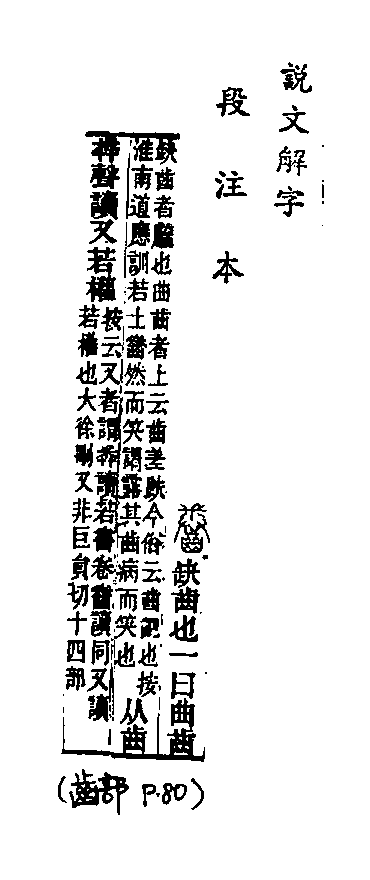 說文解字
段注本
齤缺齒也一曰曲齒
缺齒者齾也曲齒者上云齒差跌今俗云齒齙也按
淮南道應訓若士齤然而笑謂露其齒病而笑也
从齒
𢍏聲讀又若權
按云又者謂𢍏讀若書卷齤讀同又讀
若權也大徐刪又非巨員切十四部
(齒部 P.80)